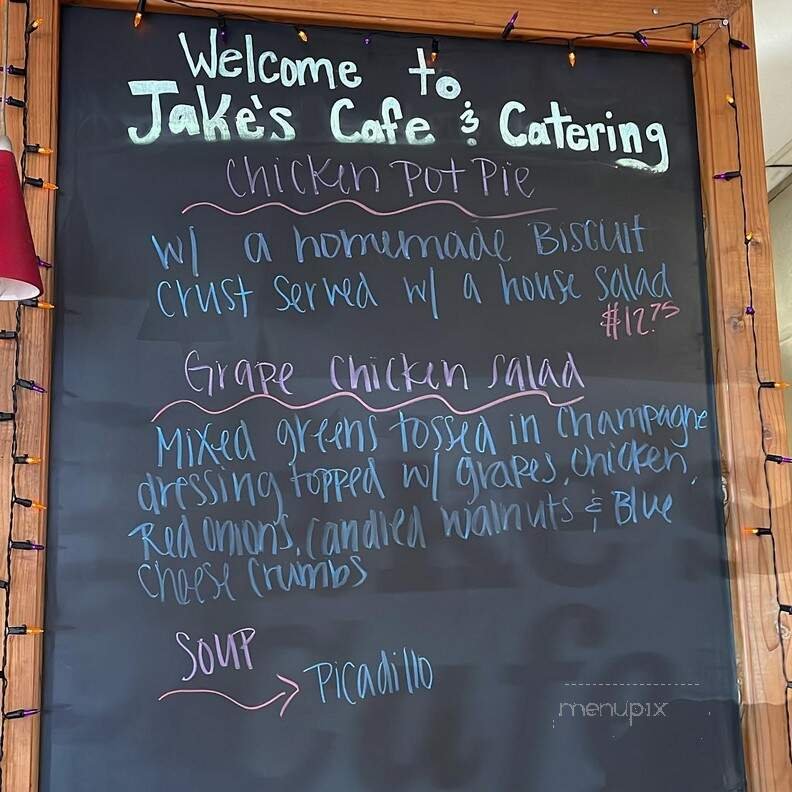 Welcome to
Jake's Cafe & Catering
Chicken Pot Pie
w/ a homemade Biscuit
crust served w/ a house salad
$12.75
Grape chicken salad
Mixed greens tossed in champagne
dressing topped w/ grapes, chicken,
Red onions, candied walnuts & Blue
cheese crumbs
SOUP
Picadillo
menupix